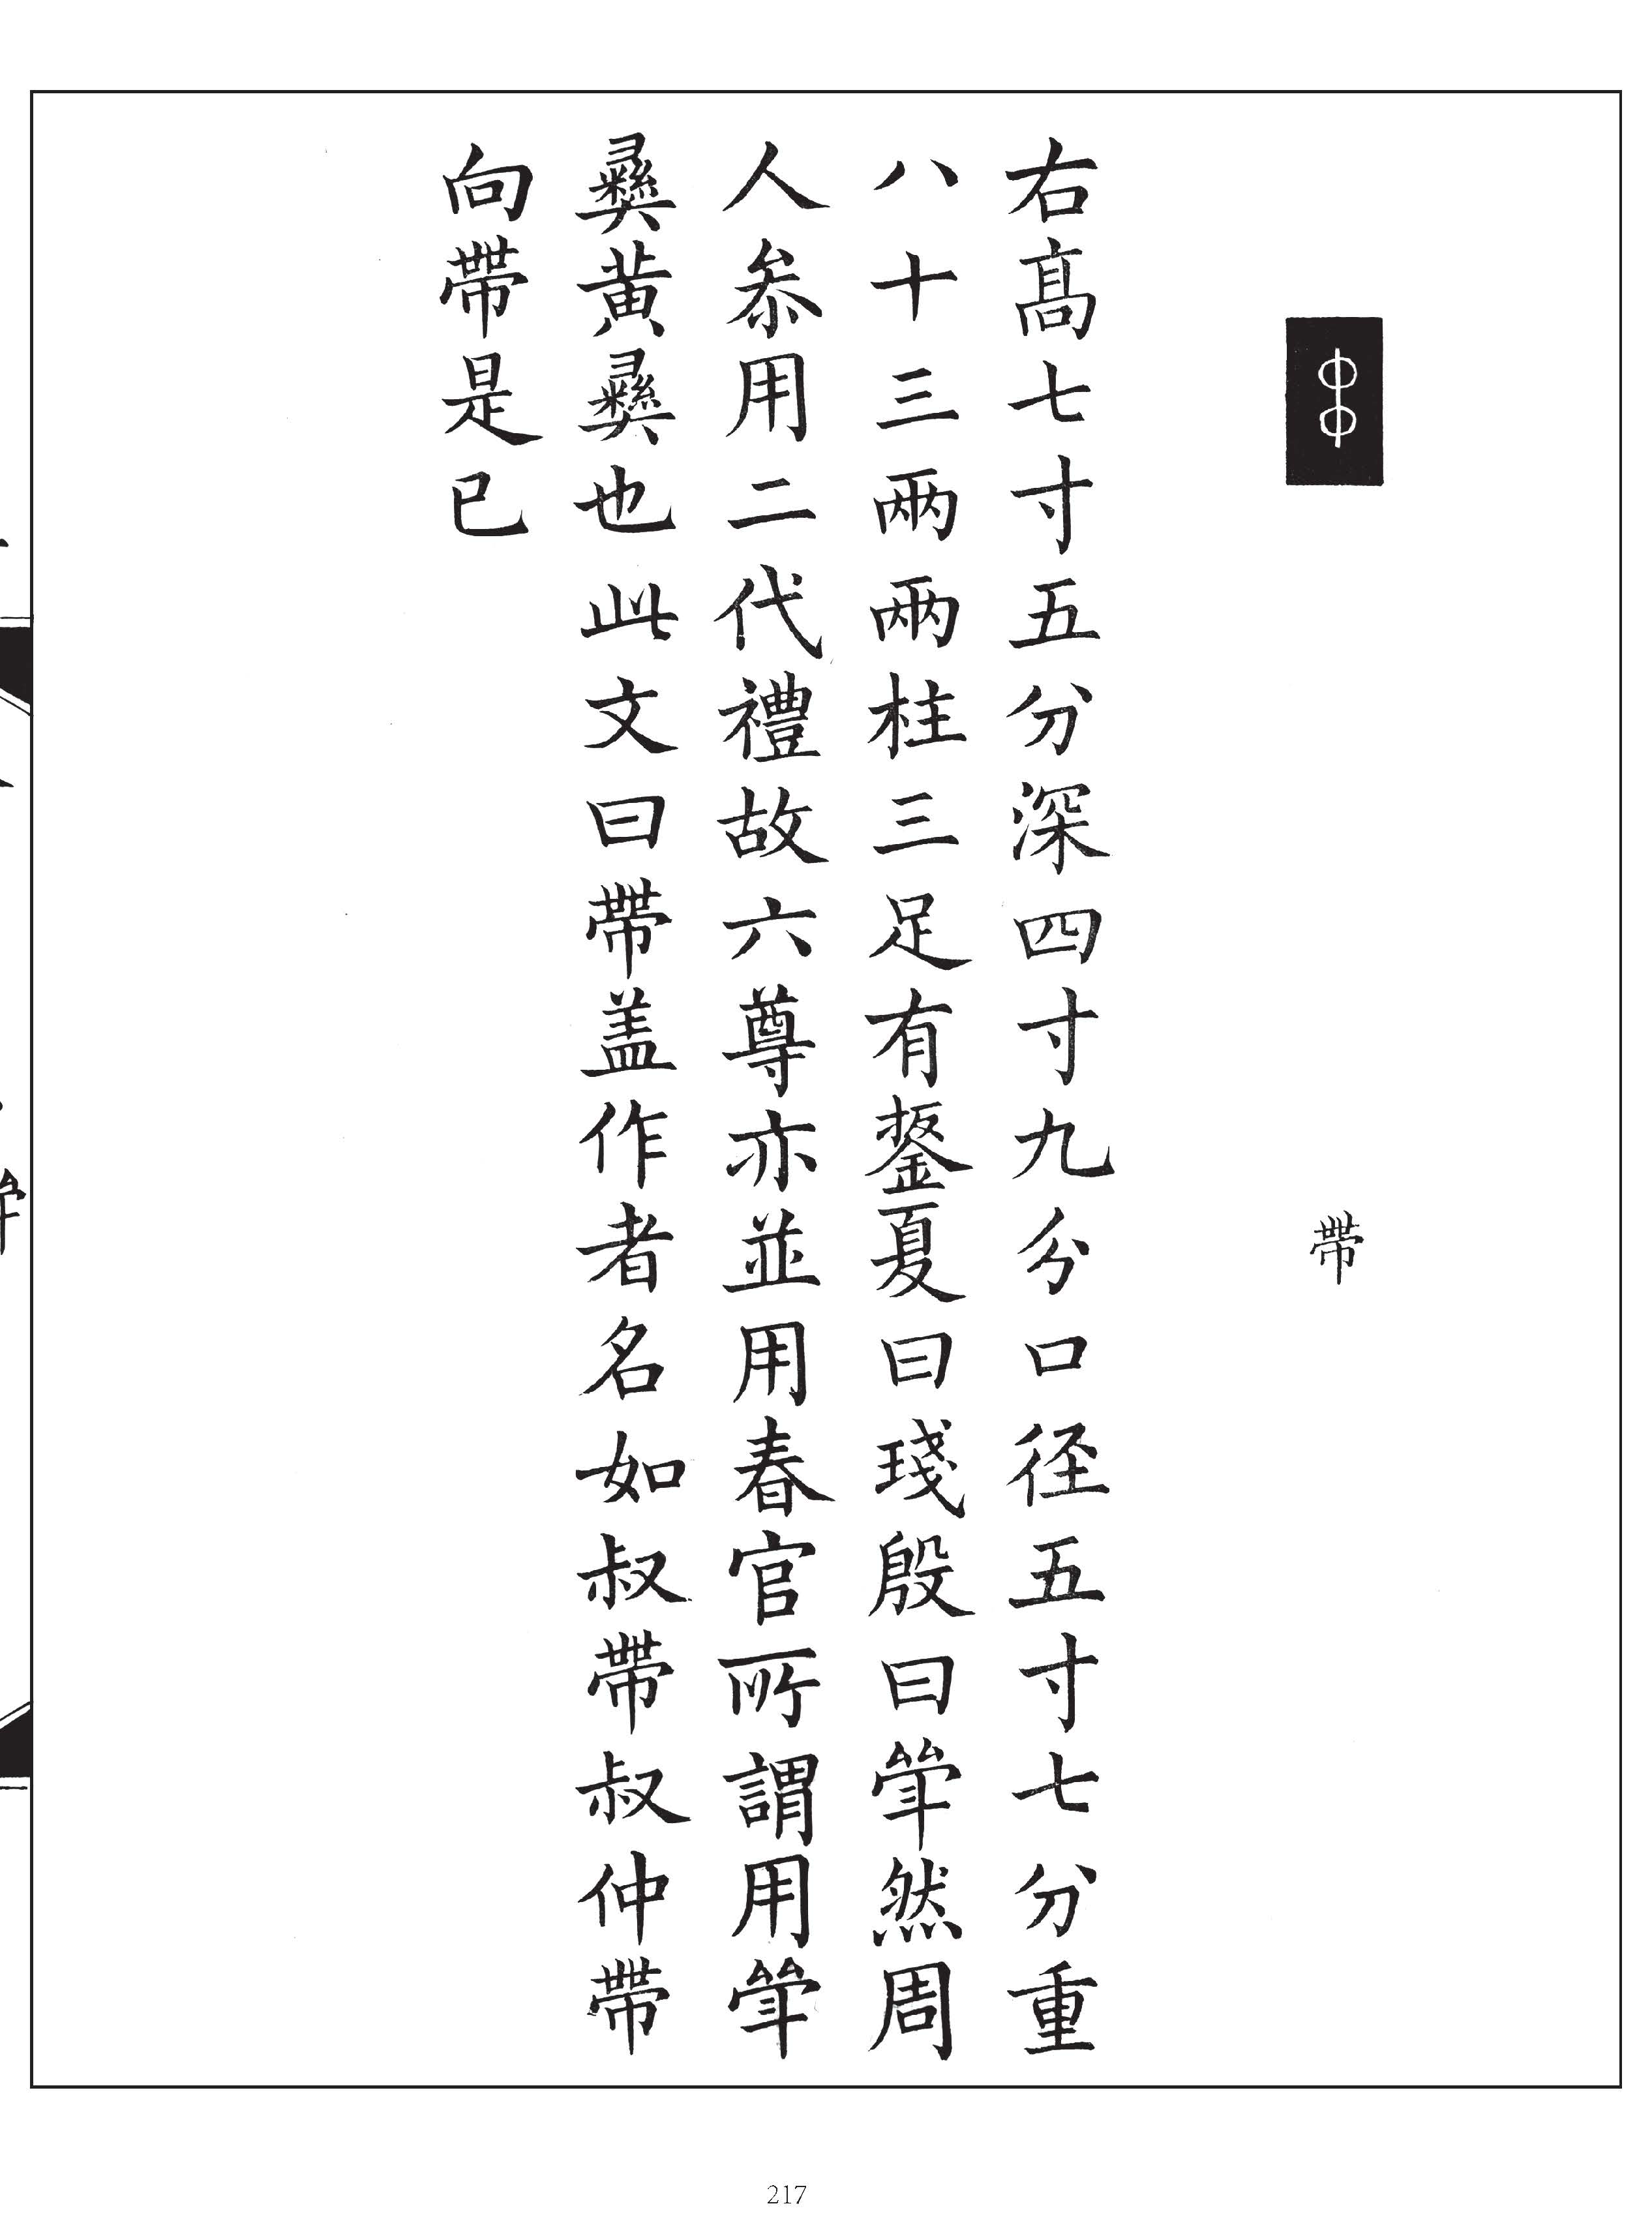 帶
右高七寸五分深四寸九分口径五寸七分重
八十三兩兩柱三足有鋬夏曰琖殷曰斝然周
人叅用二代禮故六尊亦並用春官所謂用斝
彝黄彝也此文曰帶盖作者名如叔帶叔仲帶
向帶是已
217